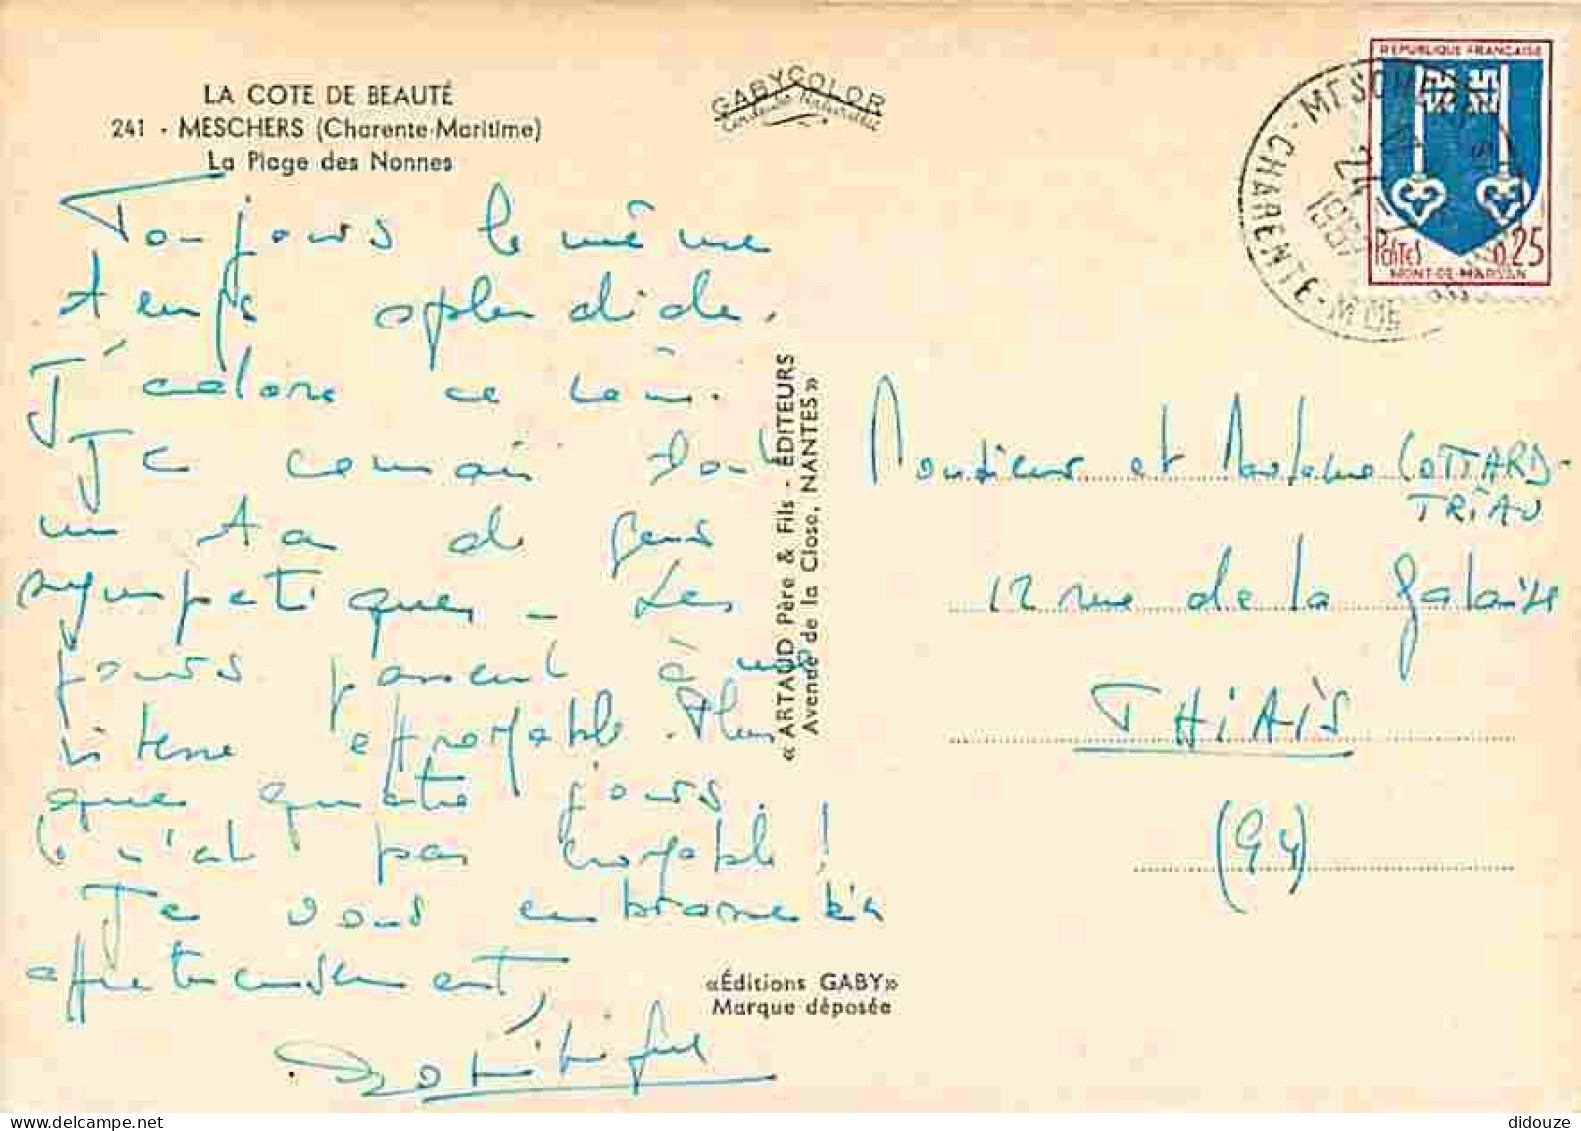 LA COTE DE BEAUTÉ
241 - MESCHERS (Charente-Maritime)
La Plage des Nonnes
GABYCOLOR
REPUBLIQUE FRANÇAISE
POSTES 0,25
MONT-DE-MARSAN
MESCHERS
CHARENTE-MME
Toujours le même
temps splendide.
J'adore ce coin.
Je connais tout
un tas de gens
sympatiques - Les
jours passent à une
vitesse effroyable. Plus
que quatre jours.
Ce n'est pas croyable !
Je vous embrasse bien
affectueusement,
« ARTAUD Père & Fils - ÉDITEURS
Avenue de la Close, NANTES »
Monsieur et Madame COTTARD-
TRIAU
12 rue de la Galaise
THIAIS
(94)
«Éditions GABY»
Marque déposée
didouze